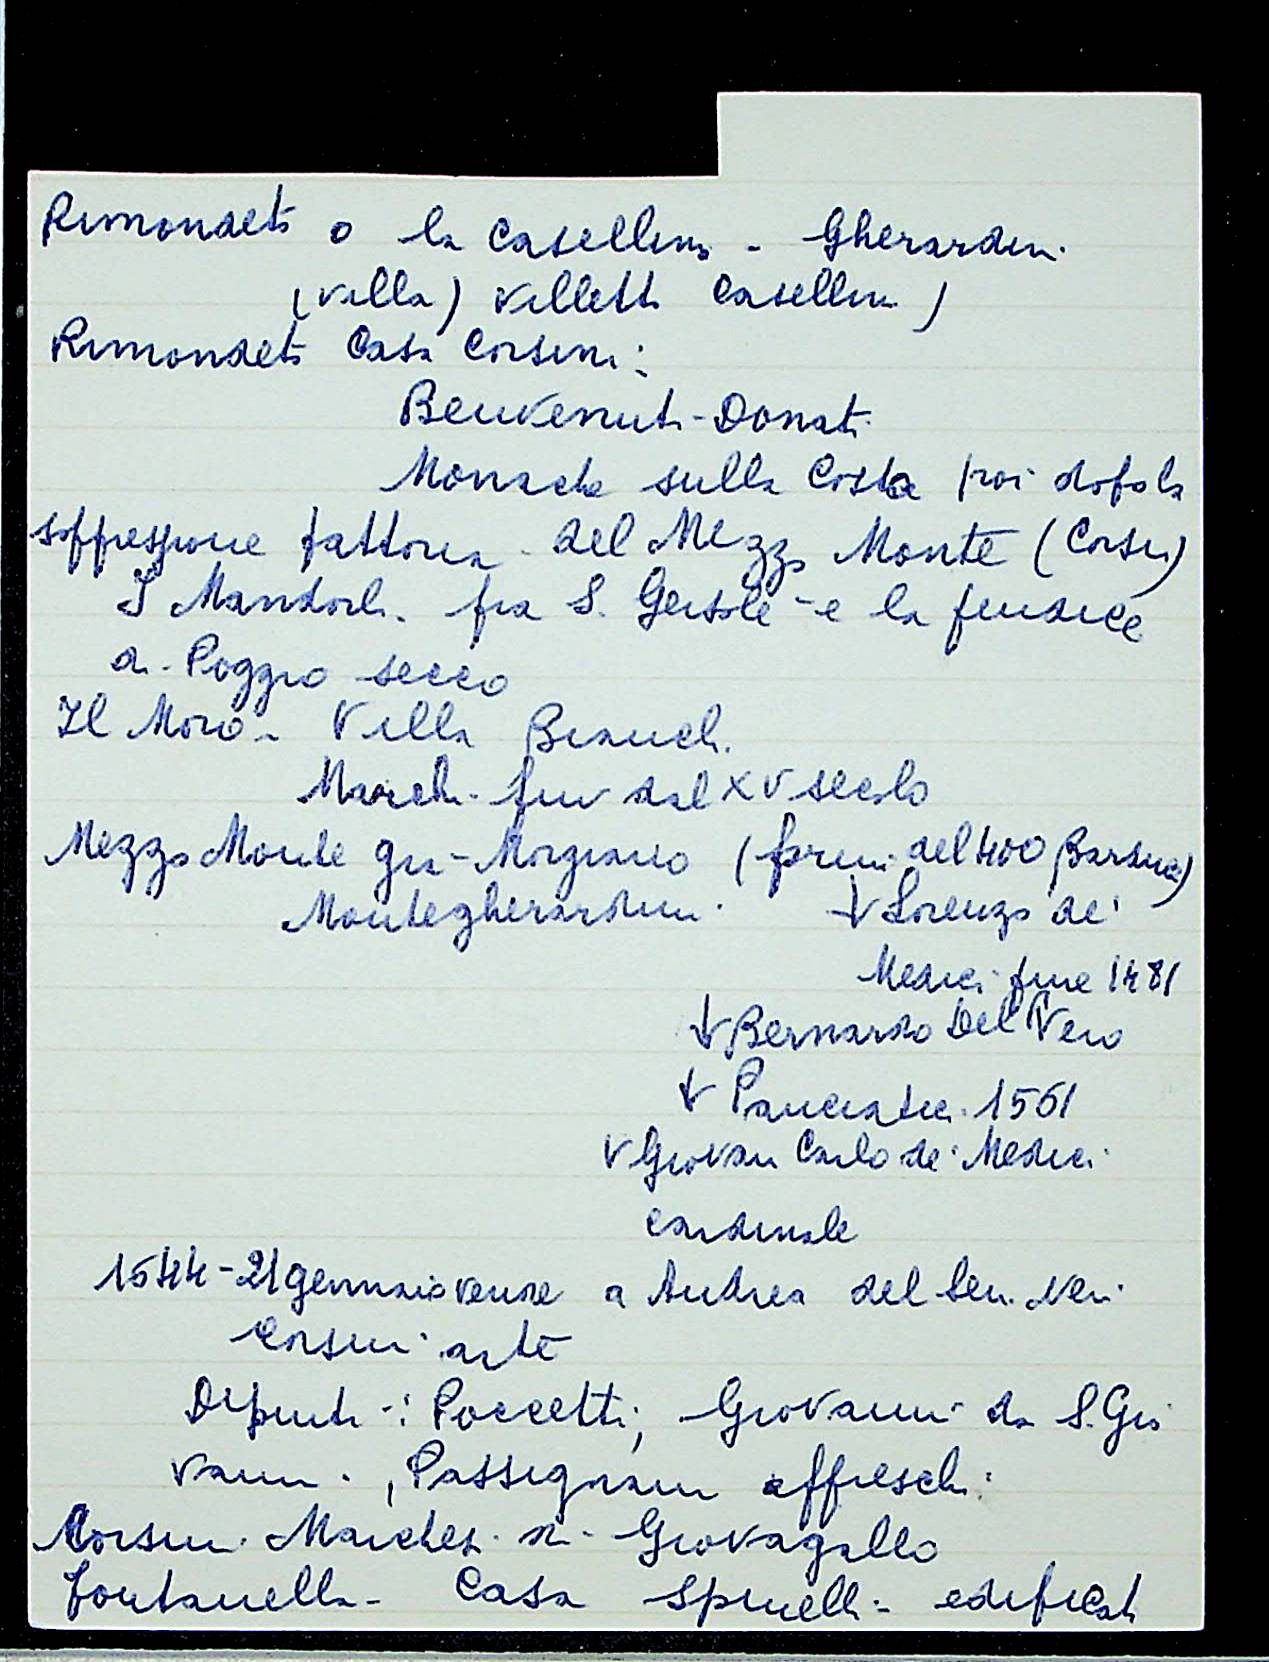 Rimondeto o la Casellina - Gherardini
(villa) Villetta Casellina)
Rimondeto Casa Corsini:
Benvenuti-Donati
Monache sulla Costa poi dopo la
soppressione fattoria del Mezzo Monte (Corsini)
I Mandorli fra S. Gersolè e la fendice
di Poggio secco
Il Moro - Villa Bianchi
March fin dal XV secolo
Mezzo Monte già Morgiano (primi del 400 Bardua)
Montegherardini ↓ Lorenzo de'
Medici fine 1481
↓ Bernardo Del Vero
↓ Panciatici 1561
↓ Giovan Carlo de' Medici
cardinale
1544-21 gennaio vende a Andrea del Sen. Neri
Corsini arte
Dipinti: Poccetti, Giovanni da S. Gio
vanni, Passignani affreschi
Corsini Marchesi di Giovagallo
Fontanella - Casa Spinelli - edificati